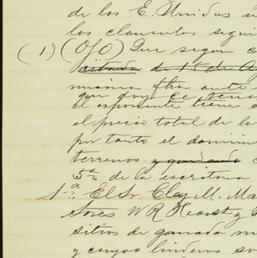 de los E. Unidos
los clausulas sigui
(1) (Ojo) Que segun c
citada de 1ª de A
misma fha ante
que don
el esponente tiene
el precio total de la
por tanto el domin
terrenos y ganado
5ª de la escritura
1ª El Sr. Clay M. Ma
W R Hearst y
sitios de ganado m
y cuyos linderos so